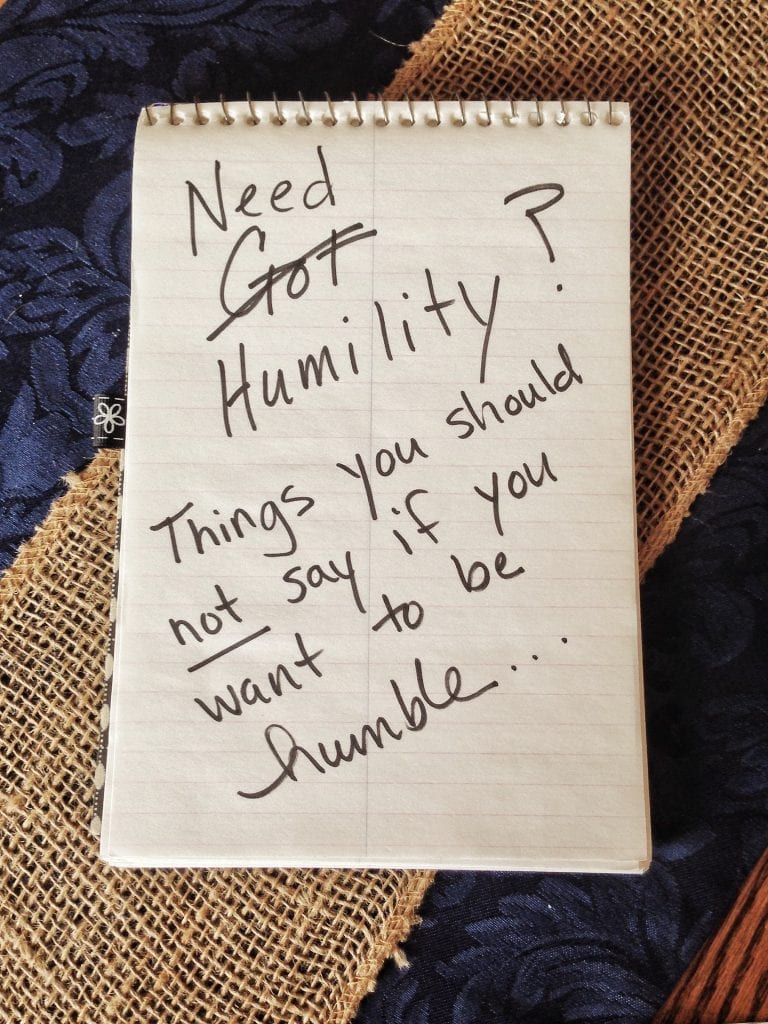 Need
Got
Humility?
Things you should
not say if you
want to be
humble...